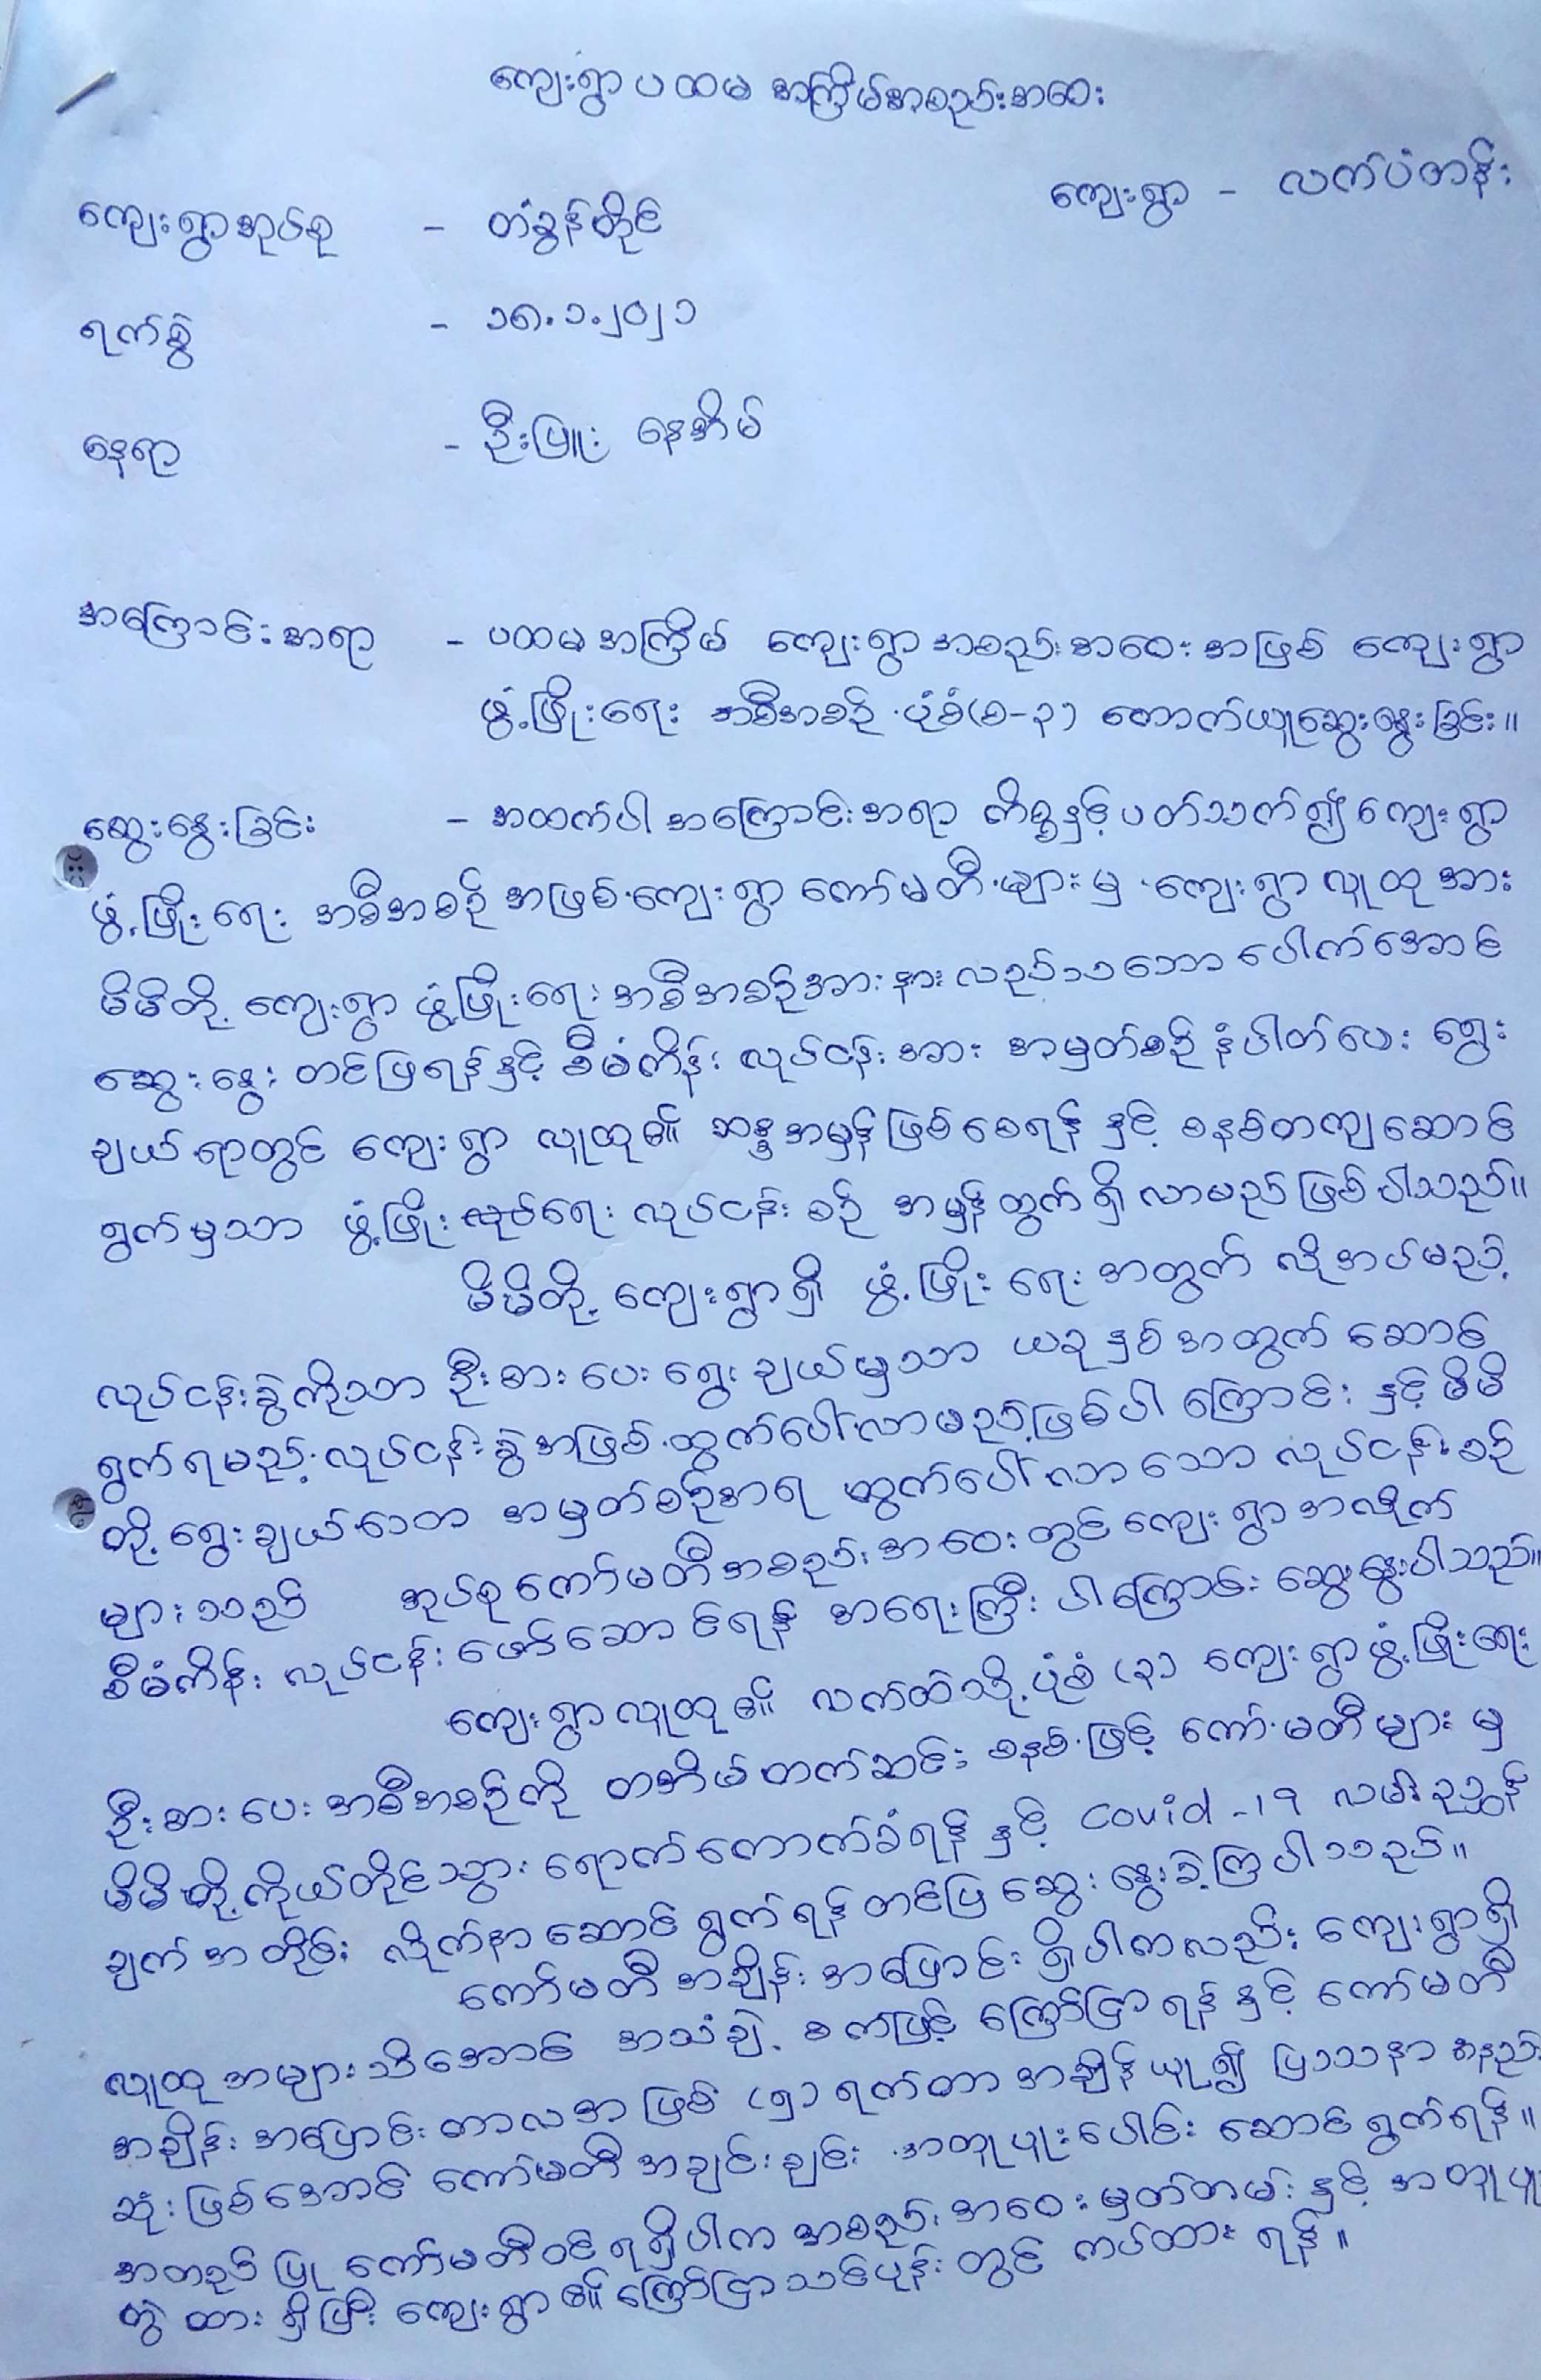 ကျေးရွာပထမ အကြိမ်အစည်းအဝေး
ကျေးရွာ - လက်ပံတန်း
ကျေးရွာအုပ်စု - တံခွန်တိုင်
ရက်စွဲ - ၁၈.၁.၂၀၂၁
နေရာ - ဦးဖြူး နေအိမ်
အကြောင်းအရာ - ပထမအကြိမ် ကျေးရွာအစည်းအဝေးအဖြစ် ကျေးရွာ
ဖွံ့ဖြိုးရေး အစီအစဉ် ပုံစံ(စ-၃) ကောက်ယူဆွေးနွေးခြင်း။
ဆွေးနွေးခြင်း - အထက်ပါအကြောင်းအရာ ကိစ္စနှင့်ပတ်သက်၍ ကျေးရွာ
ဖွံ့ဖြိုးရေး အစီအစဉ်အဖြစ် ကျေးရွာ ကော်မတီများမှ ကျေးရွာလူထုအား
မိမိတို့ ကျေးရွာ ဖွံ့ဖြိုးရေး အစီအစဉ်အား နားလည်သဘောပေါက်အောင်
ဆွေးနွေး တင်ပြရန်နှင့် စီမံကိန်း လုပ်ငန်းအား အမှတ်စဉ် နံပါတ်ပေး ရွေး
ချယ်ရာတွင် ကျေးရွာ လူထု၏ ဆန္ဒအမှန်ဖြစ်စေရန် နှင့် စနစ်တကျဆောင်
ရွက်မှသာ ဖွံ့ဖြိုး ရေး လုပ်ငန်းစဉ် အမှန်ထွက်ရှိလာမည်ဖြစ်ပါသည်။
မိမိတို့ ကျေးရွာရှိ ဖွံ့ဖြိုးရေးအတွက် လိုအပ်မည့်
လုပ်ငန်းခွဲကိုသာ ဦးစားပေး ရွေးချယ်မှသာ ယခုနှစ်အတွက် ဆောင်
ရွက်ရမည့် လုပ်ငန်းခွဲအဖြစ် ထွက်ပေါ်လာမည်ဖြစ်ပါကြောင်း နှင့် မိမိ
တို့ ရွေးချယ်သော အမှတ်စဉ်အရ ထွက်ပေါ်လာသော လုပ်ငန်းစဉ်
များသည် အုပ်စုကော်မတီအစည်းအဝေးတွင် ကျေးရွာအလိုက်
စီမံကိန်း လုပ်ငန်း ဖော်ဆောင်ရန် အရေးကြီးပါကြောင်း ဆွေးနွေးပါသည်။
ကျေးရွာလူထု၏ လက်ထဲသို့ ပုံစံ (၃) ကျေးရွာဖွံ့ဖြိုးရေး
ဦးစားပေးအစီအစဉ်ကို တအိမ်တက်ဆင်း စနစ်ဖြင့် ကော်မတီများမှ
မိမိတို့ကိုယ်တိုင်သွားရောက်ကောက်ခံရန် နှင့် Covid-19 လမ်းညွှန်
ချက်အတိုင်း လိုက်နာဆောင်ရွက်ရန် တင်ပြဆွေးနွေးခဲ့ကြပါသည်။
ကော်မတီ အချိန်း အပြောင်း ရှိပါကလည်း ကျေးရွာရှိ
လူထုအများသိအောင် အသံချဲ့ စက်ဖြင့် ကြော်ငြာရန် နှင့် ကော်မတီ
အချိန်း အပြောင်း ကာလအဖြစ် (၅) ရက်တာ အချိန်ယူ၍ ပြဿနာ အနည်း
ဆုံးဖြစ်အောင် ကော်မတီ အချင်းချင်း အတူပူးပေါင်း ဆောင်ရွက်ရန်။
အတည်ပြု ကော်မတီဝင်ရရှိပါက အစည်းအဝေးမှတ်တမ်းနှင့် အတူပူး
တွဲထားရှိပြီး ကျေးရွာ၏ ကြော်ငြာသင်ပုန်းတွင် ကပ်ထားရန်။